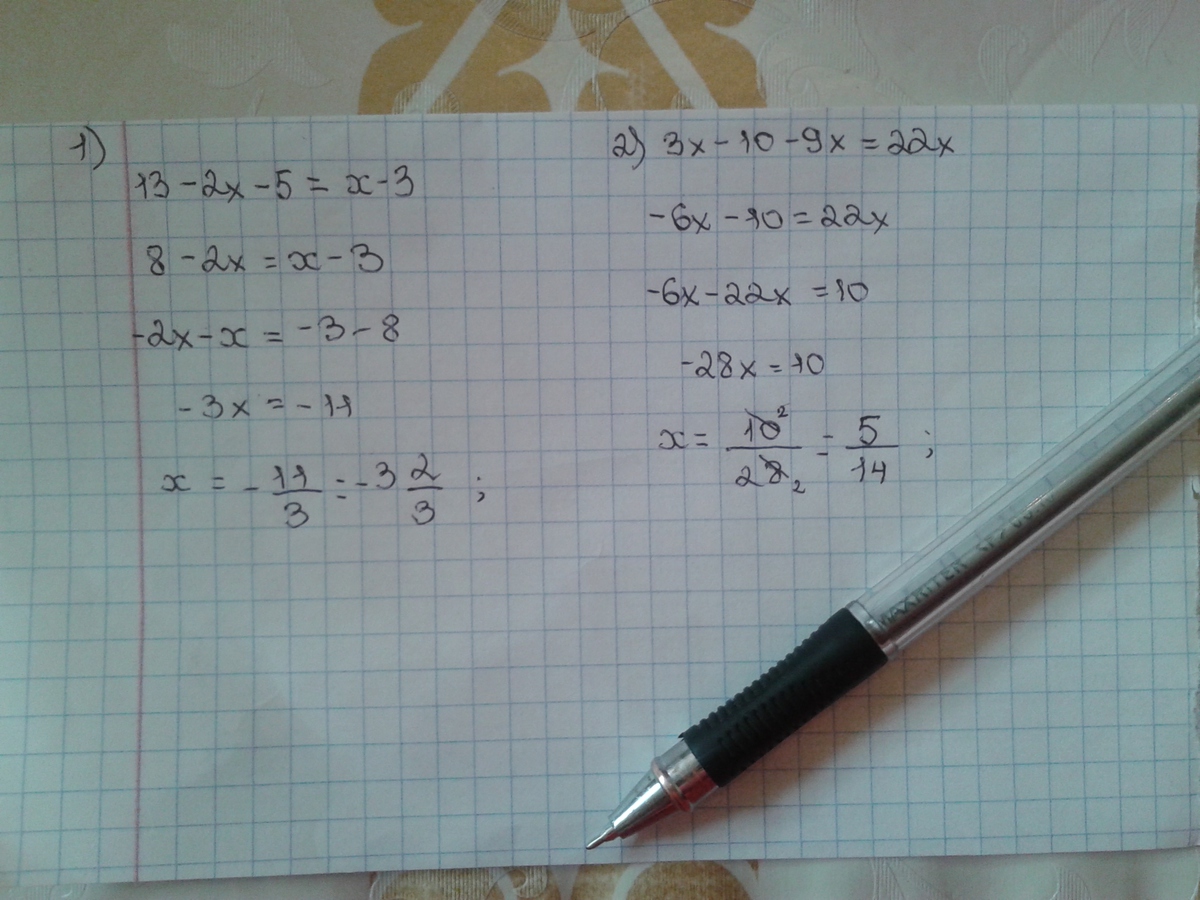 1)
13 - 2x - 5 = x - 3
8 - 2x = x - 3
-2x - x = -3 - 8
-3x = -11
x = - 11/3 = -3 2/3 ;
2) 3x - 10 - 9x = 22x
-6x - 10 = 22x
-6x - 22x = 10
-28x = 10
x = 10²/28₂ = 5/14 ;